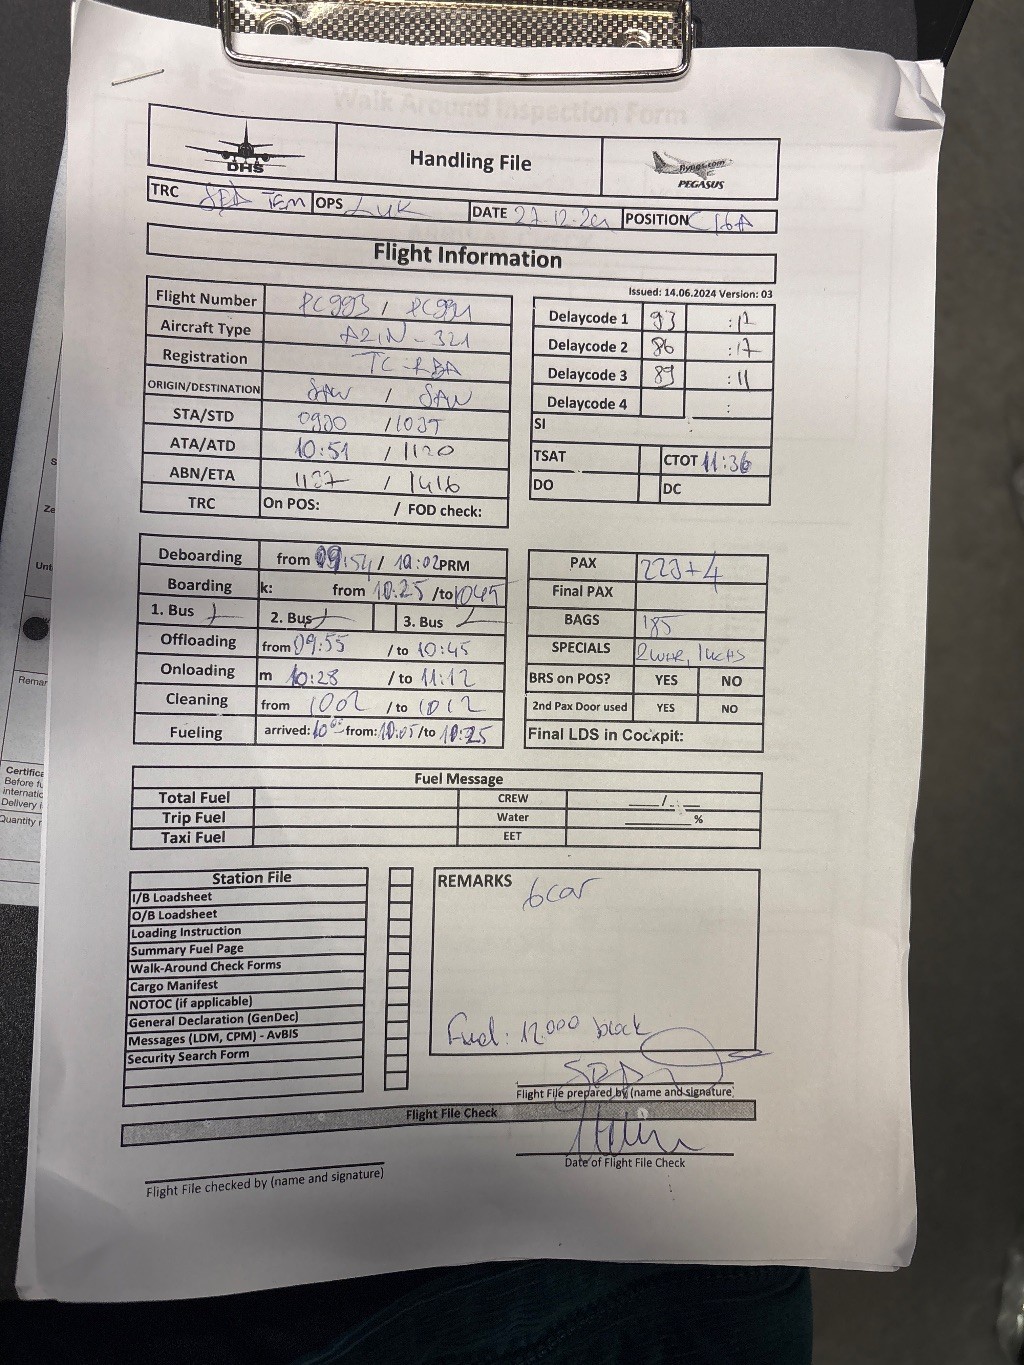 Walk Around Inspection Form
DHS
Handling File
flypgs.com
PEGASUS
TRC OPS LUK DATE 27.12.24 POSITION C16A
Flight Information
Issued: 14.06.2024 Version: 03
Flight Number PC993 / PC994
Aircraft Type A21N - 321
Registration TC-RBA
ORIGIN/DESTINATION SAW / SAW
STA/STD / 1035
ATA/ATD 10:51 / 1120
ABN/ETA 1137 / 1416
TRC On POS: / FOD check:
Delaycode 1 93 :12
Delaycode 2 86 :17
Delaycode 3 89 :11
Delaycode 4 :
SI
TSAT CTOT 11:36
DO DC
Deboarding from 09:54 / 10:02 PRM
Boarding k: from 10:25 /to 1045
1. Bus 2. Bus 3. Bus
Offloading from 09:55 /to 10:45
Onloading m 10:28 /to 11:12
Cleaning from 1002 /to 1012
Fueling arrived: from: 10:05 /to 10:25
PAX 223+4
Final PAX
BAGS 185
SPECIALS
BRS on POS? YES NO
2nd Pax Door used YES NO
Final LDS in Cockpit:
Fuel Message
Total Fuel CREW __/__
Trip Fuel Water ____%
Taxi Fuel EET
Station File
I/B Loadsheet
O/B Loadsheet
Loading Instruction
Summary Fuel Page
Walk-Around Check Forms
Cargo Manifest
NOTOC (if applicable)
General Declaration (GenDec)
Messages (LDM, CPM) - AvBIS
Security Search Form
REMARKS 6car
Fuel: 12.000 block
Flight File prepared by (name and signature)
Flight File Check
Flight File checked by (name and signature)
Date of Flight File Check
Remar
Certifica
Before fu
internatic
Delivery i
Quantity r